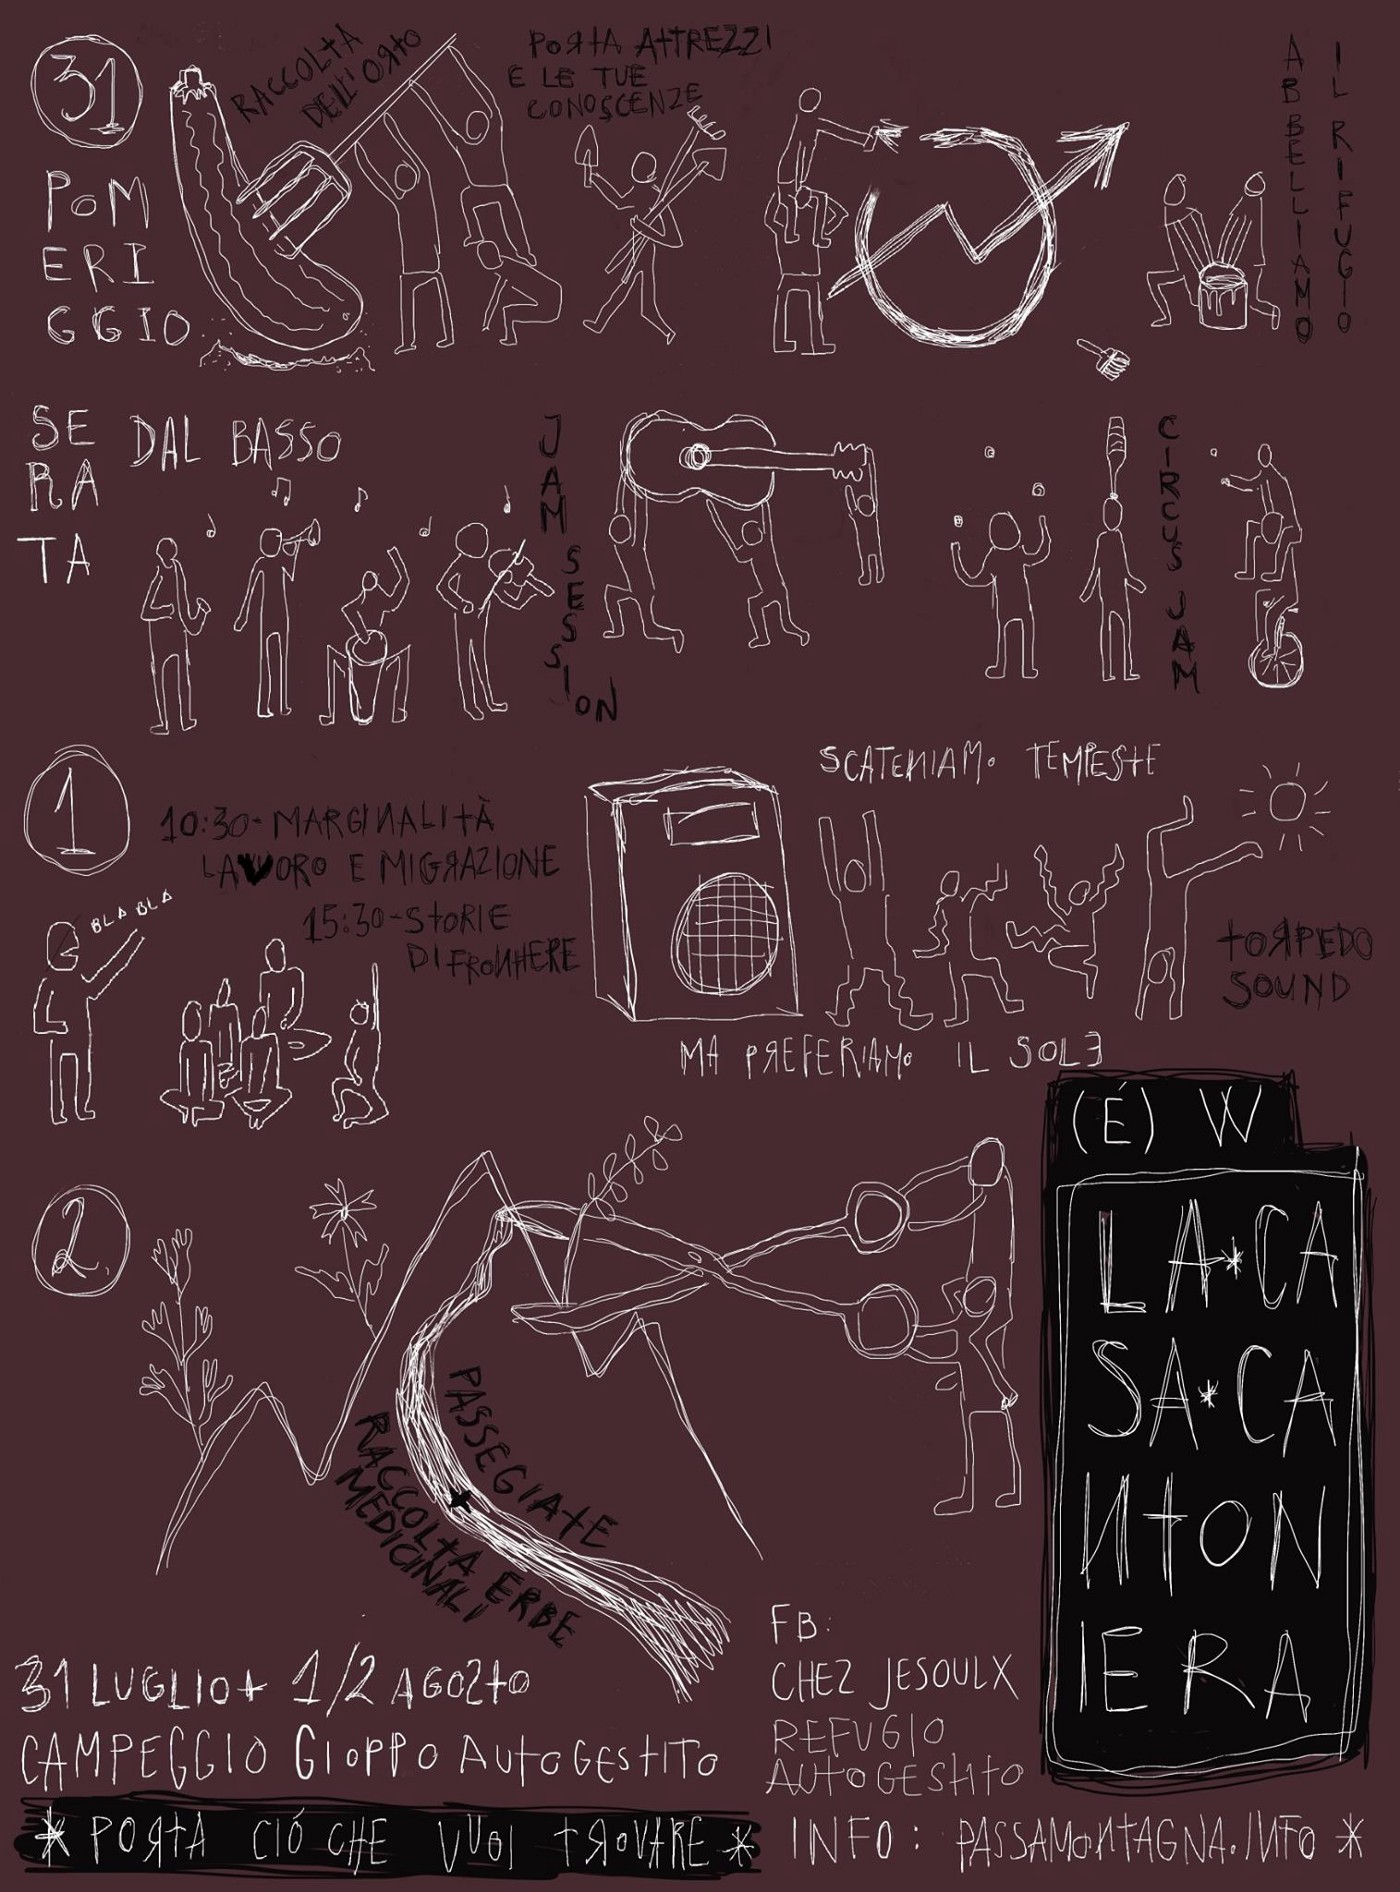 31
POM
ERI
GGIO
RACCOLTA
DELL'ORTO
PORTA ATTREZZI
E LE TUE
CONOSCENZE
ABBELLIAMO
IL RIFUGIO
SE
RA
TA
DAL BASSO
JAM SESSION
CIRCUS JAM
1
10:30-MARGINALITÀ
LAVORO E MIGRAZIONE
15:30-STORIE
DI FRONTIERE
BLA BLA
SCATENIAMO TEMPESTE
TORPEDO
SOUND
MA PREFERIAMO IL SOLE
2
PASSEGIATE
RACCOLTA ERBE
MEDICINALI
(É) W
LA*CA
SA*CA
NTON
IERA
31 LUGLIO+ 1/2 AGOZTO
CAMPEGGIO GIOPPO AUTOGESTITO
* PORTA CIÓ CHE VUOI TROVARE *
FB:
CHEZ JESOULX
REFUGIO
AUTOGESTITO
INFO: PASSAMONTAGNA.INFO *